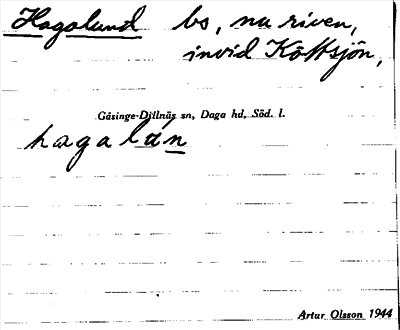 Hagalund bs, nu riven,
invid Köttsjön,
Gåsinge-Dillnäs sn, Daga hd, Söd. l.
hagalún
Artur Olsson 1944